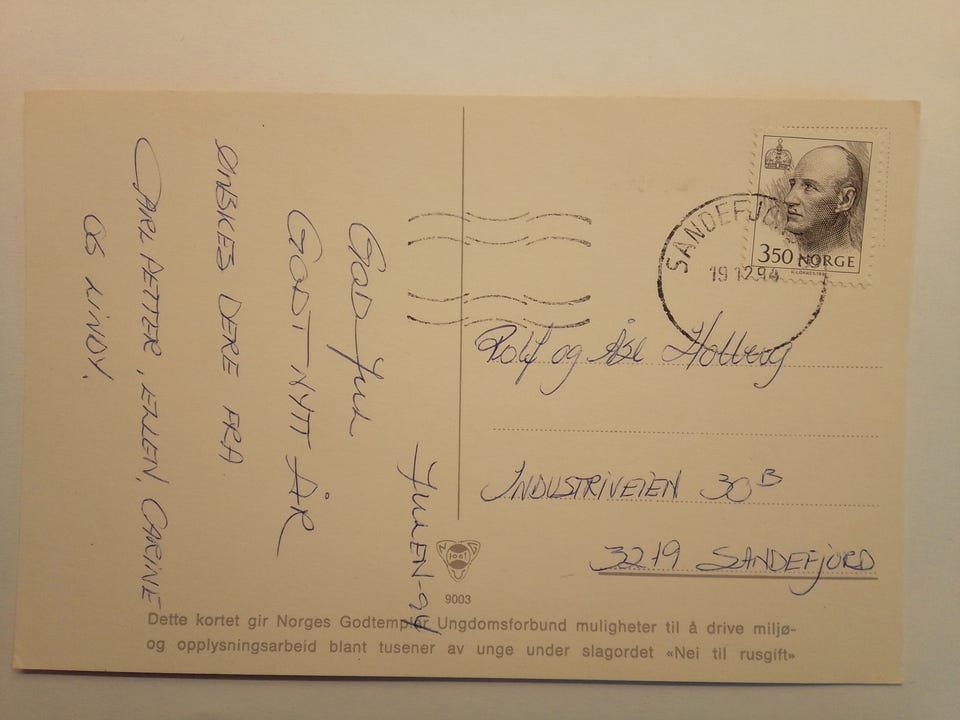 JULEN-94
GOD JUL
GODT NYTT ÅR
ØNSKES DERE FRA
CARL PETTER, ELLEN, CARINE
OG LINDY.
SANDEFJORD
19 12.94
350 NORGE
Rolf og Åse Holberg
INDUSTRIVEIEN 30B
3219 SANDEFJORD
9003
Dette kortet gir Norges Godtemplar Ungdomsforbund muligheter til å drive miljø-
og opplysningsarbeid blant tusener av unge under slagordet «Nei til rusgift»